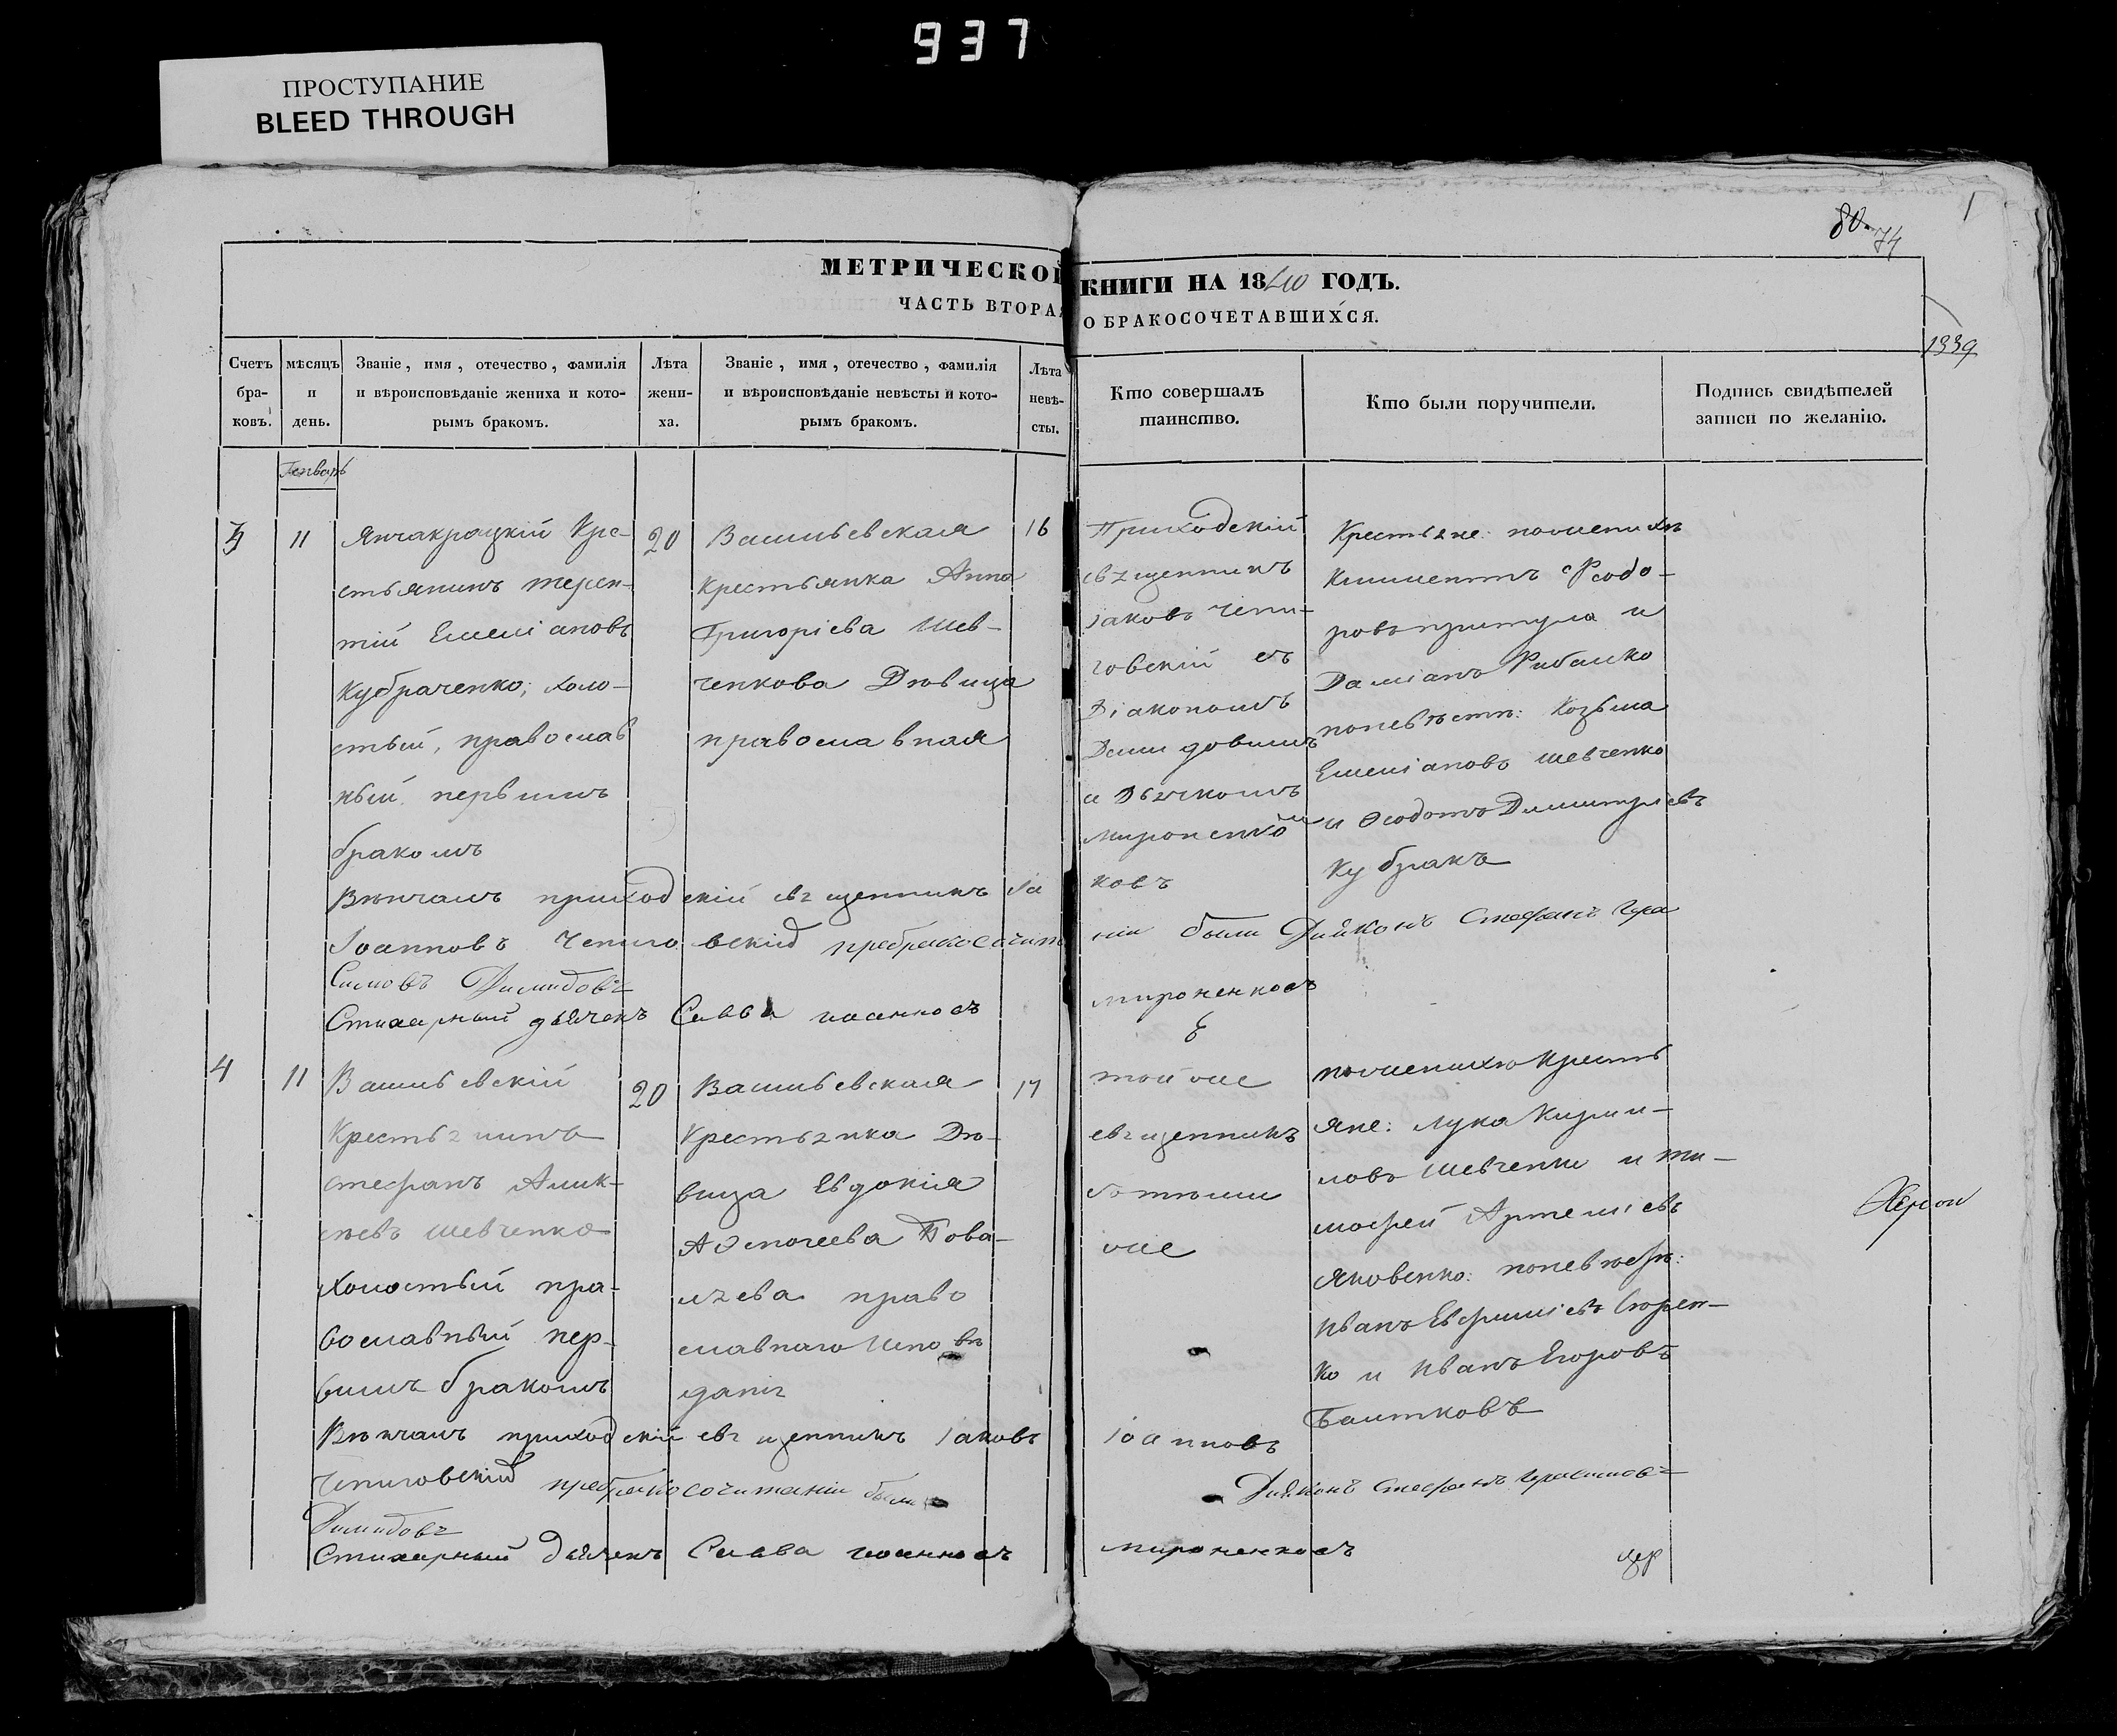 937
ПРОСТУПАНИЕ
BLEED THROUGH
1
80.
74
МЕТРИЧЕСКОЙ КНИГИ НА 1840 ГОДЪ.
ЧАСТЬ ВТОРАЯ О БРАКОСОЧЕТАВШИХСЯ.
1339
Счетъ браковъ.
мѣсяцъ и день.
Званіе, имя, отечество, фамилія
и вѣроисповѣданіе жениха и кото-
рымъ бракомъ.
Лѣта
жени-
ха.
Званіе, имя, отечество, фамилія
и вѣроисповѣданіе невѣсты и кото-
рымъ бракомъ.
Лѣта
невѣ-
сты.
Кто совершалъ
таинство.
Кто были поручители.
Подпись свидѣтелей
записи по желанію.
Генварь
3
11
Янчакрацкій Кре-
стьянинъ терен-
тій Емеліановъ
Кубраченко; холо-
стый, православ
ный первымъ
бракомъ
20
Васильевская
Крестьянка Анна
Григоріева Шев-
ченкова Дѣвица
православная
16
Приходскій
священникъ
Іаковъ Чепи-
говскій съ
Діакономъ
Демидовымъ
и Дьячкомъ
мироненко
ковъ
Крестьяне: поженихѣ
Климентъ Феодо-
ровъ притула и
Даміанъ Рибалко
поневѣстѣ: Козьма
Емеліановъ шевченко
и Ѳеодотъ Димитріевъ
Кубракъ
Вѣнчалъ приходскій священникъ Іа
Іоанновъ Чепиговскій прибракосочита
ніи были Дияконъ Стефанъ Гера
Симовъ Димидовъ
Стихарный дьячекъ Савва иоанновъ мироненковъ
4
11
Васильевскій
Крестьянинъ
стефанъ Алик-
сѣевъ шевченко
Холостый пра-
вославный пер-
вымъ бракомъ
20
Васильевская
Крестьянка Дѣ-
вица Евдокія
православнаго исповѣ
данія
17
тойже
священникъ
сотѣми
же
поженихѣ Кресть
яне: Лука Кирил-
ловъ Шевченко и ти-
мофей Артеміевъ
Яковенко: поневѣстѣ:
Иванъ Евфиміевъ
ко и Иванъ Егоровъ
Вѣнчалъ приходскій священникъ Іаковъ Іоанновъ
Чепиговскій прибракосочитаніи были Дияконъ Стефанъ Герасимовъ
Димидовъ
Стихарный дьячекъ Савва иоанновъ мироненковъ
Херсон
цер